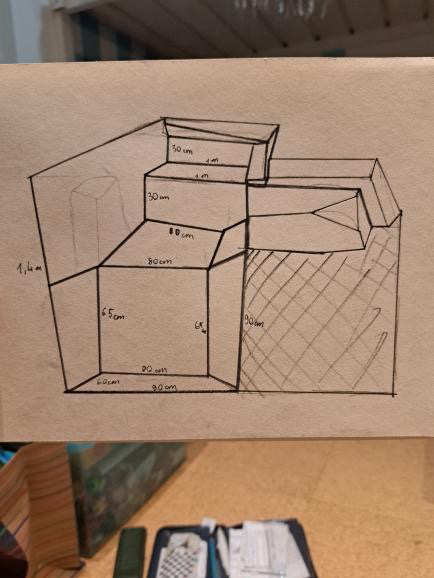 30cm
1m
1m
30cm
80cm
80cm
1,4m
65cm
65
90cm
80cm
60cm
80cm